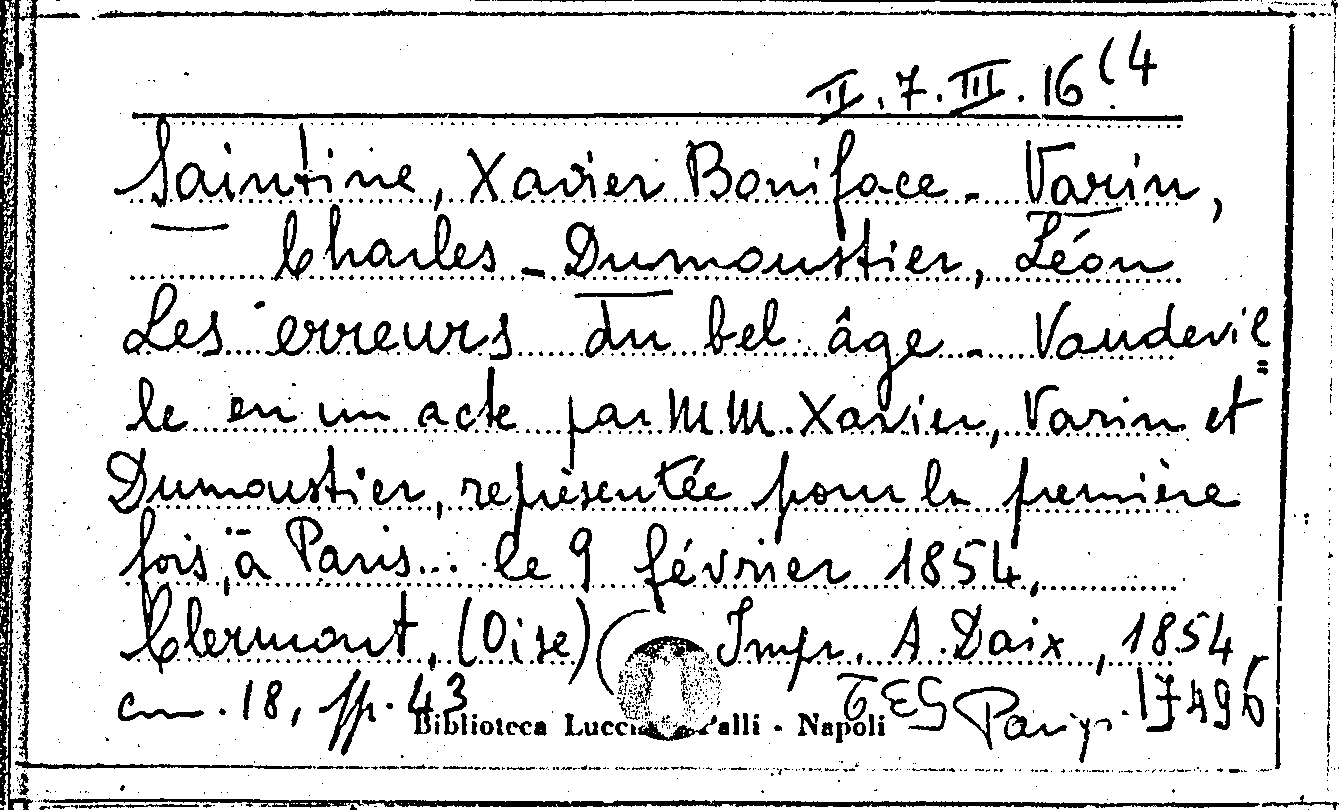 II.7.III.16(4
Saintine, Xavier Boniface - Varin,
Charles - Dumoustier, Léon
Les erreurs du bel âge - Vaudevil=
le en un acte par MM. Xavier, Varin et
Dumoustier, représentée pour la première
fois, à Paris... le 9 février 1854,
Clermont, (Oise) Impr. A. Daix, 1854
cm. 18, pp. 43 Parigi 17496
Biblioteca Lucchesi Palli - Napoli